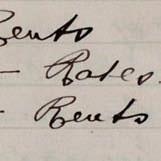 Rents
— Rates.
- Rents